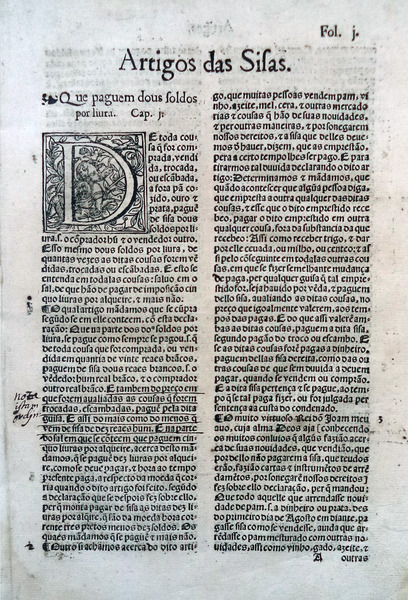 Fol. j.
Artigos das Sisas.
Que paguem dous soldos
por liura. Cap. j.
DE toda cou
sa q̃ for com
prada, vendi
da, trocada,
ou escãbada,
a fora pã co
zido, ouro &
prata, paguẽ
de sisa dous
soldos por li-
ura.s. o cõprador hũ & o vendedor outro.
Esto mesmo dous soldos por liura, de
quantas vezes as ditas cousas forem vẽ
didas, trocadas ou escãbadas. E esto se en
tenda em todalas cousas: saluo em o
sal, de que hão de pagar de imposição cin
quo liuras por alqueire, & mais não.
O qual artigo mãdamos que se cũpra
segũdo em elle contem, cõ esta decla
ração: Que na parte dos dous soldos por
liura, se pague como sempre se pagou.s. q̃
de toda cousa que for comprada, ou ven-
dida em quantia de vinte reaes brãcos,
paguem de sisa dous brancos.s. o vẽ
dedor hum real brãco, & o comprador
outro real brãco. E tambem do preço em
que forem aualiadas as cousas q̃ forem
trocadas, escambadas, pague pela dita
guisa. E assi do mais como do menos q̃
vem de sisa de dez reaes hum. E na parte
do sal em que se cõtem que paguem cin
quo liuras por alqueire, acerca dello mã-
damos, q̃ se pague dez liuras por alquei-
re, como se ora pague, & hora ao tempo
presente paga, a respecto da moeda q̃ corria
quando o dito artigo foi feito, segũdo
a declaração que se despois fez sobre ello,
per q̃ monta pagar de sisa as ditas dez li-
uras por alqueire, q̃ são da moeda hora cor-
rente tres pretos menos dez soldos. Os
quaes mãdamos q̃ se paguẽ & mais não.
Outro si achamos acerca do dito arti-
go, que muitas pessoas vendem pam, vi-
nho, azeite, mel, cera, & outras mercado
rias & cousas q̃ hão de suas nouidades,
& per outras maneiras, & por sonegarem
nossos dereitos, & a sisa que delles deue-
mos d'hauer, dizem, que as emprestão
pera a certo tempo lhes ser pago. E para
tirarmos tal duuida declarando o dito ar
tigo: Determinamos & mãdamos, que
quãdo acontecer que algũa pessoa diga,
que empresta a outra qualquer das ditas
cousas, & esse que o dito emprestido rece-
beo, pagar o dito emprestido em outra
qualquer cousa, fora da substancia da que
recebeo: Assi como receber trigo, & dar
por elle ceuada, ou milho, ou centeo; & as
si pelo cõseguinte em todalas outras cou
sas, em que se fizer semelhante mudança
de paga, per qualquer guisa q̃ tal empre-
stido for, seja hauido por vẽda, & paguem
dello sisa, aualiando as ditas cousas, no
preço que igualmente valerem, aos tem-
pos das pagas. E do que assi valerẽ am-
bas as ditas cousas, paguem a dita sisa,
segundo pagão do troco ou escambo. E
se as ditas cousas forẽ pagas a dinheiro,
paguem dellas sisa direita, como das ou-
tras cousas de que sem duuida a deuem
pagar, quando se vendem ou compião.
E a dita sisa pertença & se pague, ao tem-
po q̃ se tal paga fizer, ou for julgada per
sentença aa custa do condenado.
O muito virtuoso Rei dõ Joam meu
auo, cuja alma Deos aja (conhecendo
os muitos conluios q̃ algũs fazião, acer-
ca de suas nouidades, que vendião, que
por dello não pagarem a sisa, que teudos
erão, fazião cartas & instrumẽtos de arrẽ
damẽtos, por sonegarẽ nossos dereitos)
fez sobre ello declaração, per q̃ mandou:
Que todo aquelle que arrendasse nouida-
de de pam.s. a dinheiro ou prata, des
do primeiro dia de Agosto em diante, pa-
gasse sisa como se vendesse, ainda que ar-
rẽdasse o pam mesturado com outras no-
uidades, assi como vinho, gado, azeite, &
A outras